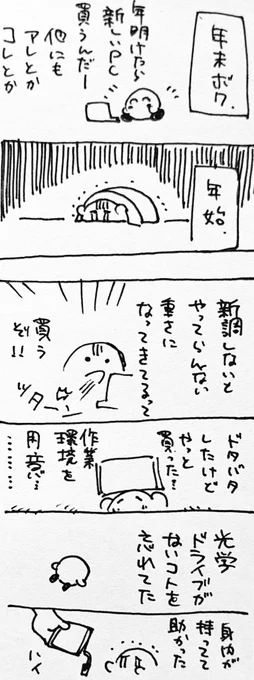 年末ボク。
年明けたら
新しいPC
買うんだー
他にも
アレとか
コレとか
年始。
新調しないと
やってらんない
重さに
なってきてるって
買う
ぞ!!
ッター
ドタバタ
したけど
やっと
買った…
作業
環境を
用意…
………
光学
ドライブが
ないコトを
忘れてた
身内が
持ってて
助かった
ハイ